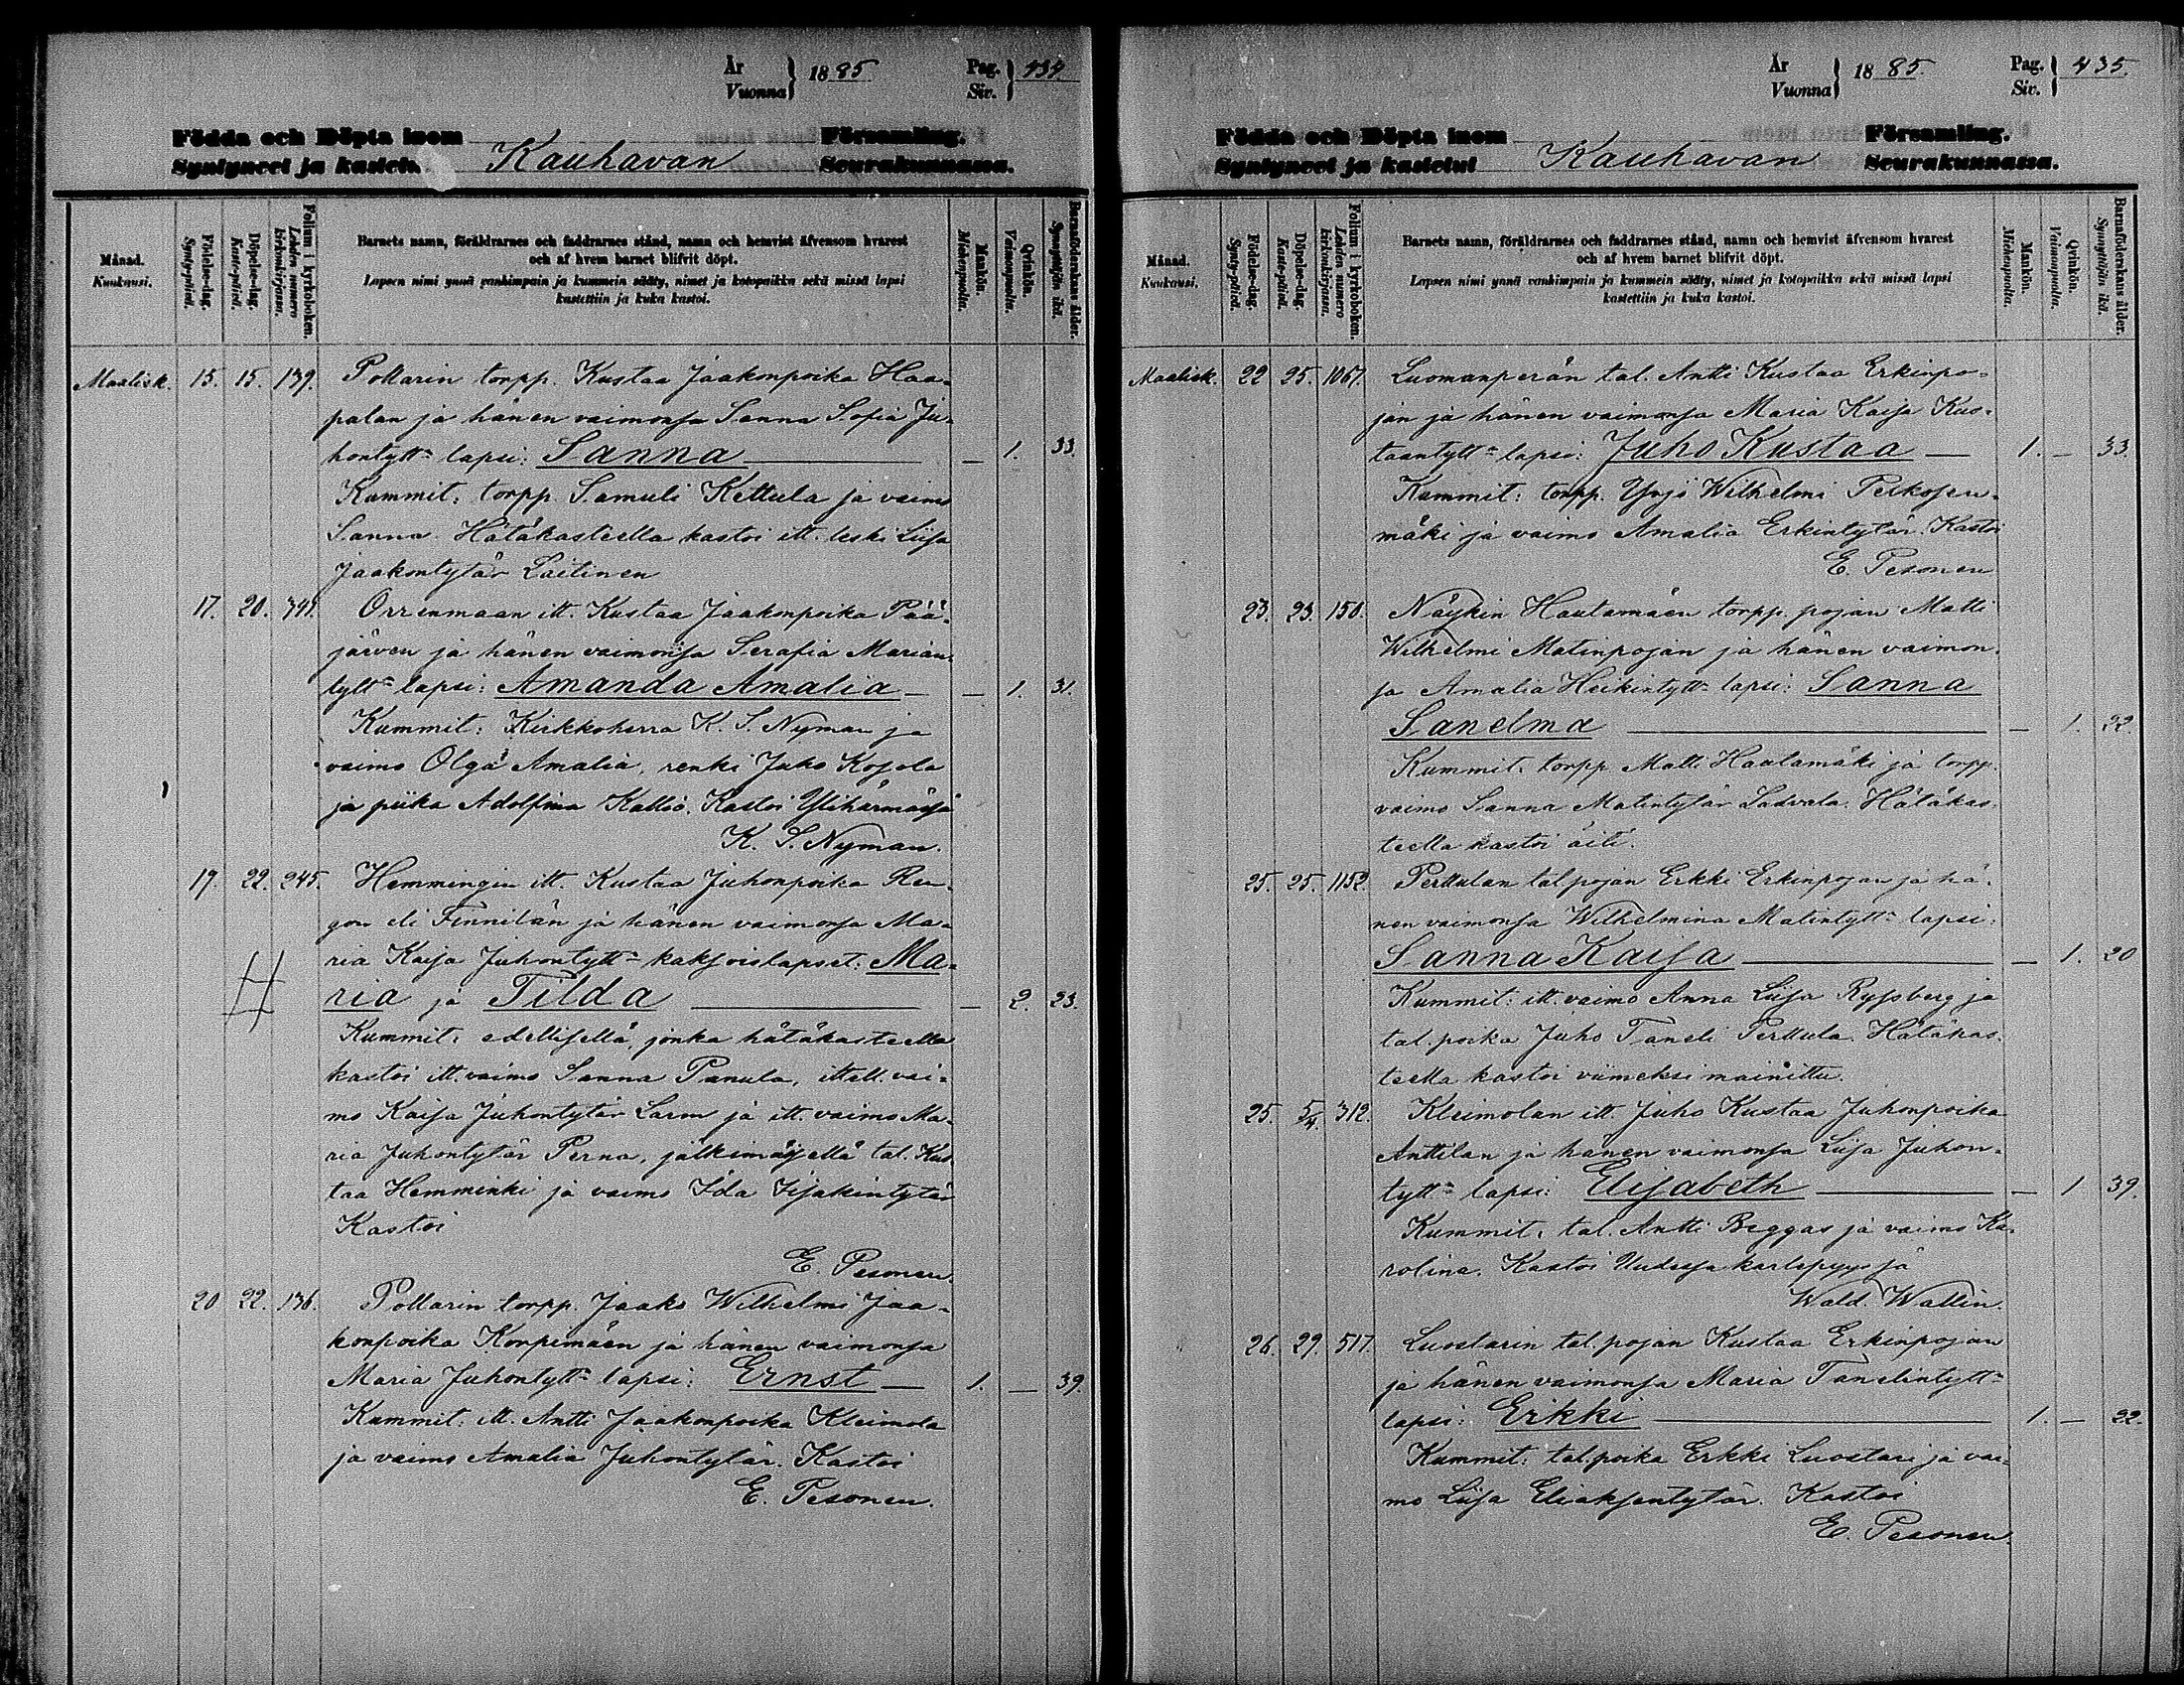 År
Vuonna } 1885 Pag.
Siv. } 434
Födda och Döpta inom Församling.
Syntyneet ja kastet. Kauhavan Seurakunnassa.
Månad.
Kuukausi.
Födelse-dag.
Synty-päivä.
Döpelse-dag.
Kaste-päivä.
Folium i kyrkoboken.
Lehden numero kirkonkirjassa.
Barnets namn, föräldrarnes och faddrarnes stånd, namn och hemvist äfvensom hvarest
och af hvem barnet blifvit döpt.
Lapsen nimi ynnä vanhimpain ja kummein sääty, nimet ja kotopaikka sekä missä lapsi
kastettiin ja kuka kastoi.
Mankön.
Miehenpuolta.
Qvinkön.
Vaimonpuolta.
Barnaföderskans ålder.
Synnyttäjän ikä.
Maalisk. 15. 15. 139. Pollarin torpp. Kustaa Jaakonpoika Haa-
palan ja hänen vaimonsa Sanna Sofia Ju-
hontytt= lapsi: Sanna — 1. 33.
Kummit: torpp. Samuli Kettula ja vaimo
Sanna. Hätäkasteella kastoi itt. leski Liisa
Jaakontytär Laitinen
17. 20. Orrenmaan itt. Kustaa Jaakonpoika Pää-
järven ja hänen vaimonsa Serafia Marian-
tytt= lapsi: Amanda Amalia — — 1. 31.
Kummit: Kirkkoherra K. S. Nyman ja
vaimo Olga Amalia, renki Juho Kojola
ja piika Adolfina Kallio. Kastoi Ylihärmässä
K. S. Nyman.
19. 22. 245. Hemmingin itt. Kustaa Juhonpoika Ren-
gon eli Finnilän ja hänen vaimonsa Ma-
ria Kaisa Juhontytt= kaksoislapset: Ma-
ria ja Tilda — 2. 23.
Kummit: edellisellä, jonka hätäkasteella
kastoi itt. vaimo Sanna Panula, ittell. vai-
mo Kaisa Juhontytär Larm ja itt. vaimo Ma-
ria Juhontytär Perna, jälkimäisellä tal. Kus-
taa Hemminki ja vaimo Ida Iisakintytär
Kastoi
E. Pesonen.
20 22. 136. Pollarin torpp. Jaako Wilhelmi Jaa-
konpoika Korpimäen ja hänen vaimonsa
Maria Juhontytt= lapsi: Ernst — 1. — 39.
Kummit: itt. Antti Jaakonpoika Kleimola
ja vaimo Amalia Juhontytär. Kastoi
E. Pesonen.
År
Vuonna } 1885. Pag.
Siv. } 435.
Födda och Döpta inom Församling.
Syntyneet ja kastetut Kauhavan Seurakunnassa.
Månad.
Kuukausi.
Födelse-dag.
Synty-päivä.
Döpelse-dag.
Kaste-päivä.
Folium i kyrkoboken.
Lehden numero kirkonkirjassa.
Barnets namn, föräldrarnes och faddrarnes stånd, namn och hemvist äfvensom hvarest
och af hvem barnet blifvit döpt.
Lapsen nimi ynnä vanhimpain ja kummein sääty, nimet ja kotopaikka sekä missä lapsi
kastettiin ja kuka kastoi.
Mankön.
Miehenpuolta.
Qvinkön.
Vaimonpuolta.
Barnaföderskans ålder.
Synnyttäjän ikä.
Maalisk. 22 25. 1067. Luomanperän tal. Antti Kustaa Erkinpo-
jan ja hänen vaimonsa Maria Kaisa Kus-
taantytt= lapsi: Juho Kustaa — 1. — 33.
Kummit: torpp. Yrjö Wilhelmi Pelkosen-
mäki ja vaimo Amalia Erkintytär. Kastoi
E. Pesonen
23. 23. 150. Näykin Hautamäen torpp. pojan Matti
Wilhelmi Matinpojan ja hänen vaimon-
sa Amalia Heikintytt= lapsi: Sanna
Sanelma — 1. 22.
Kummit: torpp. Matti Hautamäki ja torpp.
vaimo Sanna Matintytär Ladvala. Hätäkas-
teella kastoi äiti.
25. 25. 1152. Perttulan tal. pojan Erkki Erkinpojan ja hä-
nen vaimonsa Wilhelmina Matintytt= lapsi:
Sanna Kaisa — 1. 20
Kummit: itt. vaimo Anna Liisa Ryssberg ja
tal. poika Juho Taneli Perttula. Hätäkas-
teella kastoi viimeksi mainittu.
25. 5/4. 312. Kleimolan itt. Juho Kustaa Juhonpoika
Anttilan ja hänen vaimonsa Liisa Juhon-
tytt= lapsi: Elisabeth — 1 39.
Kummit: tal. Antti Biggas ja vaimo Ka-
rolina. Kastoi Uudessa karlepyyssä
Wald. Wallin.
26. 29. 517. Luostarin tal. pojan Kustaa Erkinpojan
ja hänen vaimonsa Maria Tanelintytt=
lapsi: Erkki 1. — 22.
Kummit: tal. poika Erkki Luostari ja vai-
mo Liisa Eliaksentytär. Kastoi
E. Pesonen.